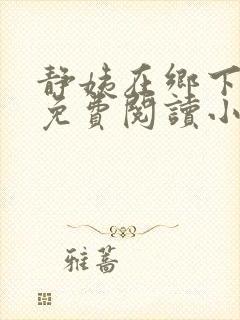 静姨在鄉下
免費閱讀小
雅蒿